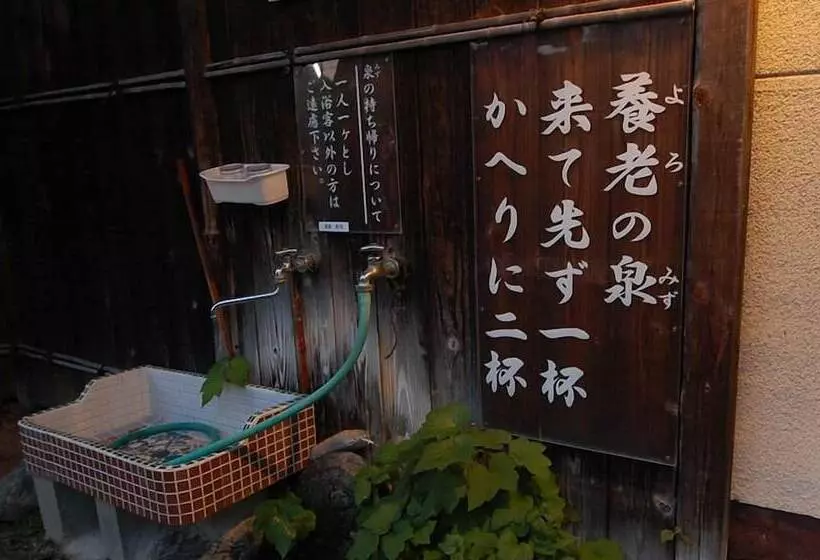 養老の泉
よろ
みず
来て先ず一杯
かへりに二杯
泉の持ち帰りについて
みず
一人一ケとし
入浴客以外の方は
ご遠慮下さい。